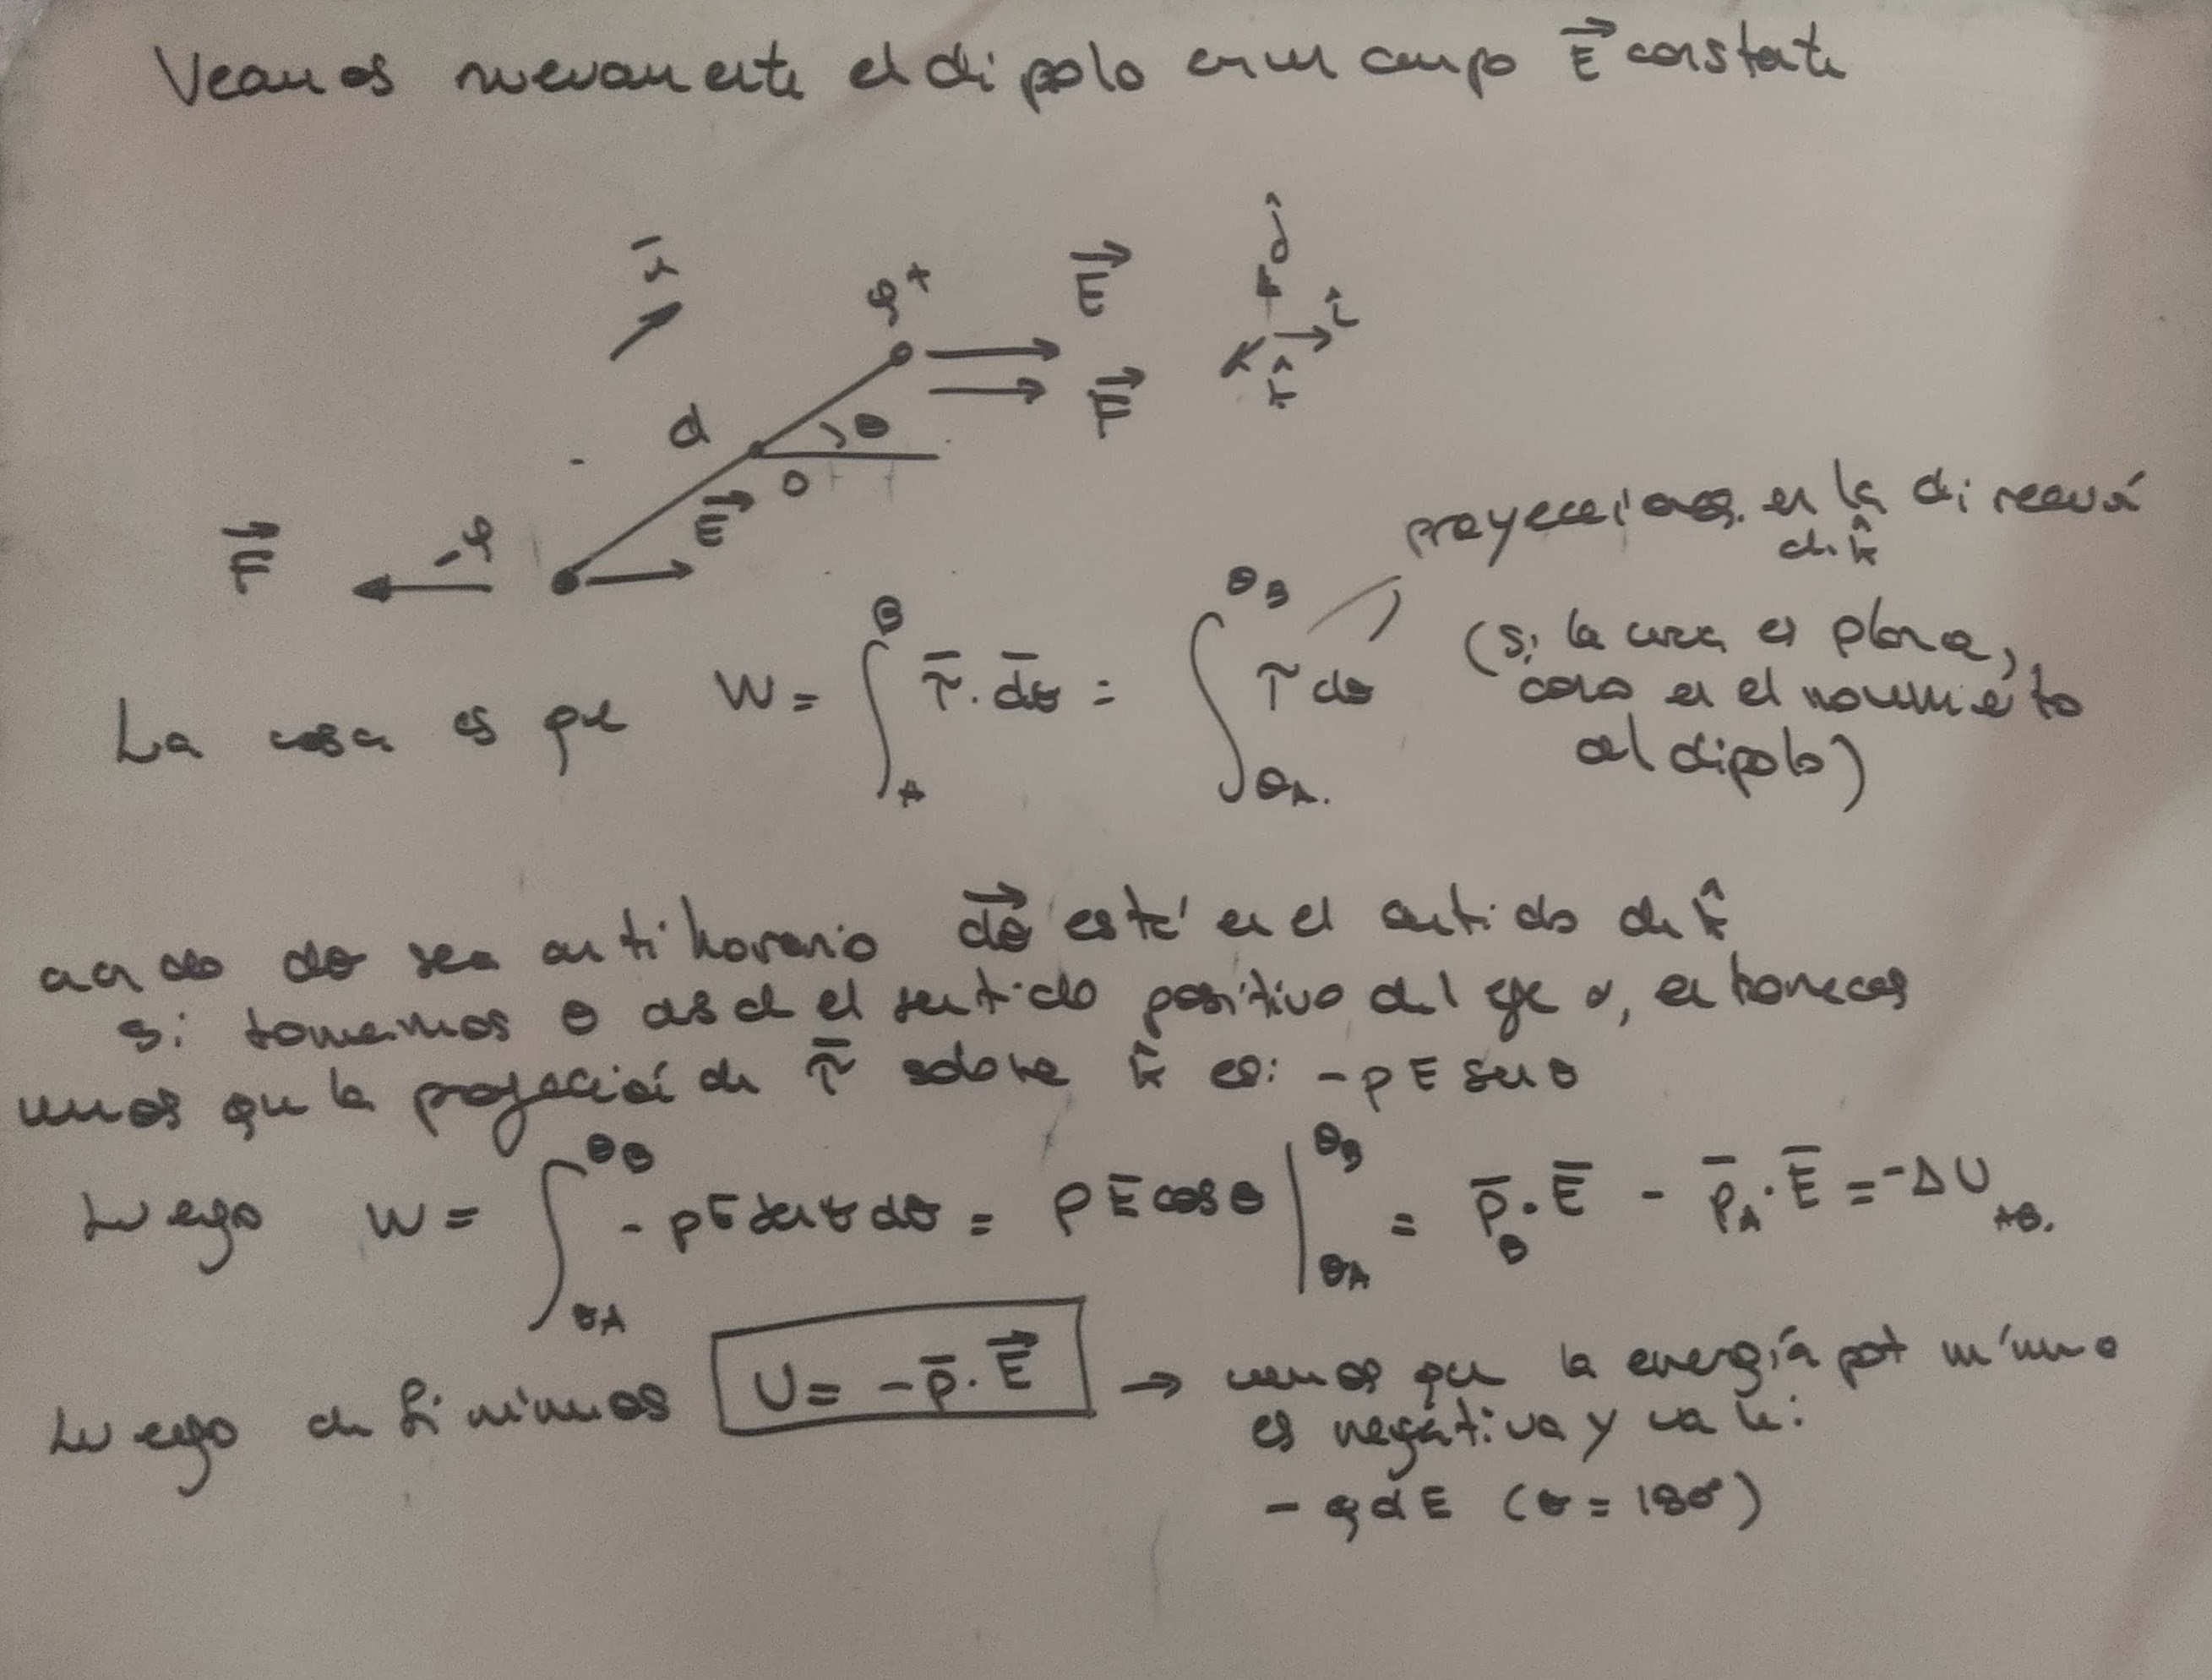 Veamos nuevamente el dipolo en un campo E⃗ constante
r̄
q+
E⃗
F⃗
ĵ
î
k̂
d
θ
O
E⃗
-q
F⃗
proyecciones en la dirección
de k̂
La cosa es que W = ∫_A^B τ̄ · dθ̄ = ∫_θA^θB τ dθ
(si la curva es plana,
como es el movimiento
del dipolo)
cuando dθ sea antihorario dθ⃗ está en el sentido de k̂
si tomamos θ desde el sentido positivo del eje x, entonces
vemos que la proyección de τ̄ sobre k̂ es: -pE sen θ
Luego W = ∫_θA^θB -pE sen θ dθ = pE cos θ |_θA^θB = p̄_B · Ē - p̄_A · Ē = -ΔU_AB.
Luego definimos U = -p̄ · E⃗ → vemos que la energía pot mínima
es negativa y vale:
- qdE (θ = 180°)